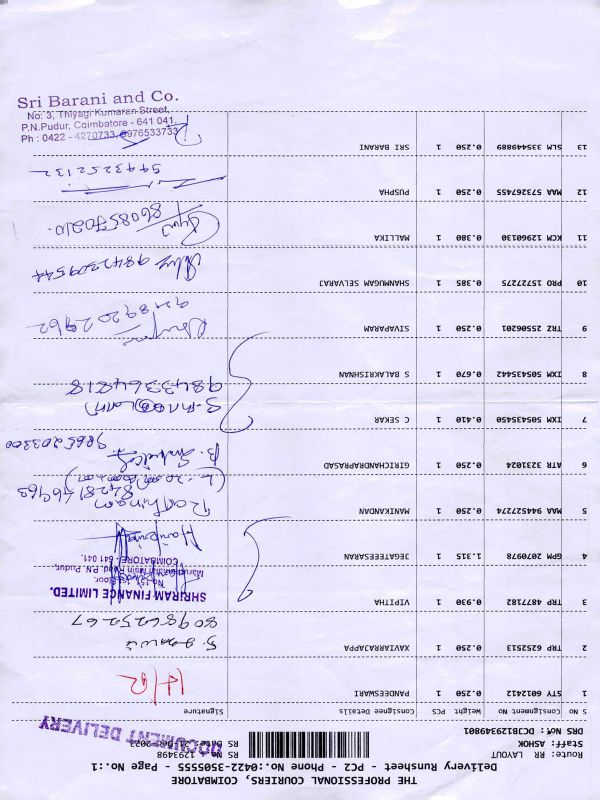 THE PROFESSIONAL COURIERS, COIMBATORE
Delivery Runsheet - PC2 - Phone No.:0422-3505555 - Page No.:1
Route: RR LAYOUT
RS No 1293498
Staff: ASHOK
RS Date:21 Dec 2022
DRS No: DCIB129349801
DOCUMENT DELIVERY
S No Consignment No Weight PCS Consignee Details Signature
1 STY 6012412 0.250 1 PANDEESWARI
2 TRP 6252513 0.250 1 XAVIARRAJAPPA
8098625267
3 TRP 4877182 0.930 1 VIPITHA
SHRIRAM FINANCE LIMITED.
COIMBATORE - 641 041.
4 GPM 2070978 1.315 1 JEGATEESARAN
5 MAA 944527274 0.250 1 MANIKANDAN
Rathinam
8428146963
6 ATR 3231024 0.250 1 GIRICHANDRAPRASAD
9865203300
7 IXM 505435450 0.410 1 C SEKAR
8 IXM 505435442 0.670 1 S BALAKRISHNAN
9843364818
9 TRZ 25506201 0.250 1 SIVAPARAM
9248920 2962
10 PRO 15727275 0.385 1 SHANMUGAM SELVARAJ
9842309544
11 KCM 12960130 0.380 1 MALLIKA
8608570210.
12 MAA 573267455 0.250 1 PUSPHA
9443252132
13 SLM 335449889 0.250 1 SRI BARANI
Sri Barani and Co.
No: 3, Thiyagi Kumaran Street,
P.N.Pudur, Coimbatore - 641 041.
Ph : 0422 - 4270733, 8976533733